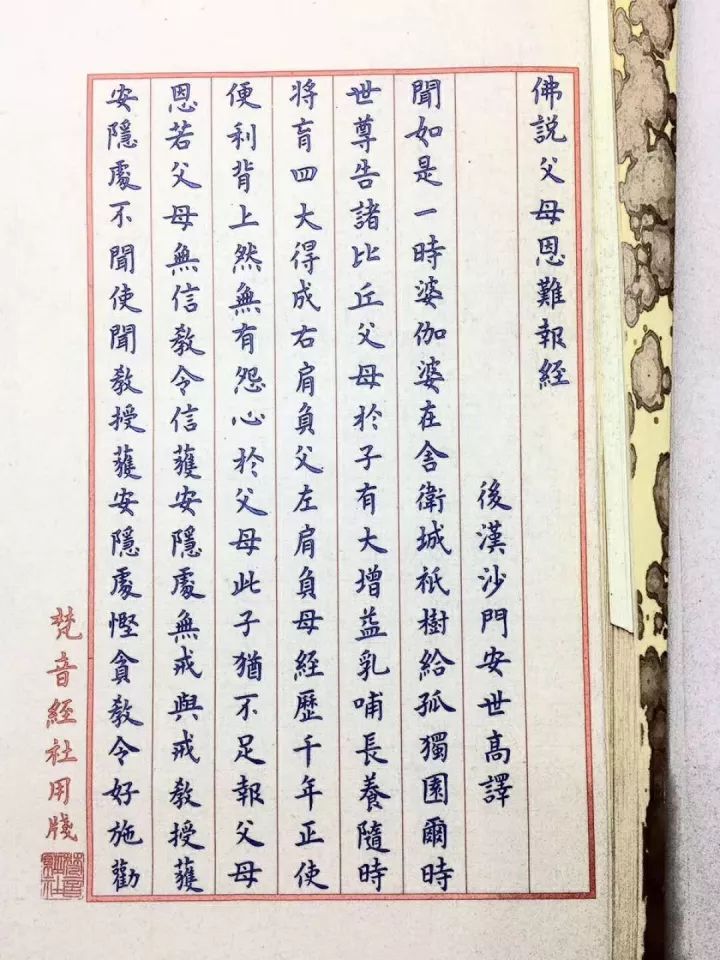 佛説父母恩難報經
後漢沙門安世高譯
聞如是一時婆伽婆在舍衛城祇樹給孤獨園爾時
世尊告諸比丘父母於子有大增益乳哺長養隨時
將育四大得成右肩負父左肩負母經歷千年正使
便利背上然無有怨心於父母此子猶不足報父母
恩若父母無信教令信獲安隱處無戒與戒教授獲
安隱處不聞使聞教授獲安隱處慳貪教令好施勸
梵音經社用牋